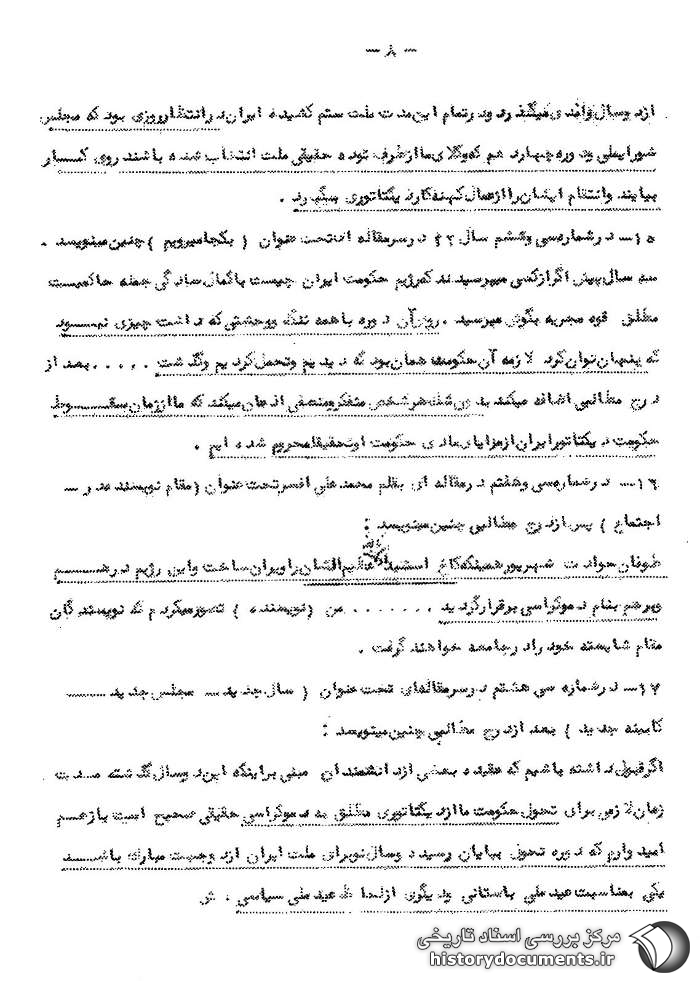 — ۸ —
ازدوسال واندی میگذرد ودرتمام این مدت ملت ستم کشیده ایران درانتظارروزی بود که مجلس
شورایملی ودوره چهارد هم که وکلای ماازطرف توده حقیقی ملت انتخاب شده باشند روی کار
بیایند وانتقام ایشان راازعمال کهنه کاردیکتاتوری بگیرد .
۱۵— درشماره سی وششم سال ۲۲ درسرمقاله اتحت عنوان ( بکجامیرویم ) چنین مینویسد .
سه سال پیش اگرازکسی میپرسیدند که رژیم حکومت ایران چیست باکمال سادگی جمله حاکمیت
مطلق قوه مجریه بگوش میرسید . روی آن دوره باهمه ننگ ووحشتش که داشت چیزی نبود
که پنهان توان کرد لازمه آن حکومت همان بود که دیدیم وتحمل کردیم وگذشت ..... بعد از
درج مطالبی اضافه میکند بدون شک هرشخص متفکرومنصفی اذعان میکند که مااززمان سقوط
حکومت دیکتاتورایران ازمزایای عادی حکومت اوتحقیقامحروم شده ایم .
۱۶— درشماره سی وهفتم درمقاله ای بقلم محمد علی افسرتحت عنوان (مقام نویسنده در —
اجتماع ) پس ازدرج مطالبی چنین مینویسد :
طوفان حوادث شهریورهمینکه کاخ استبداد عظیم الشان راویران ساخت واین رژیم درهم
وبرهم بنام دموکراسی برقرارگردید ........ من (نویسنده ) تصورمیکردم که نویسندگان
مقام شایسته خود رادرجامعه خواهند گرفت .
۱۷— درشماره سی هشتم درسرمقاله‌ای تحت عنوان ( سال جدید — مجلس جدید —
کابینه جدید ) بعد ازدرج مطالبی چنین مینویسد :
اگرقبول داشته باشیم که عقیده بعضی ازدانشمندان مبنی براینکه این دوسال گذشته مدت
زمان لازمی برای تحول حکومت ماازدیکتاتوری مطلق به دموکراسی حقیقی صحیح است بازهم
امید وارم که دوره تحول بپایان رسید وسال نوبرای ملت ایران ازدوجهت مبارک باشد
یکی بمناسبت عید ملی باستانی ودیگری ازلحاظ عید ملی سیاسی . ش
مرکز بررسی اسناد تاریخی
historydocuments.ir